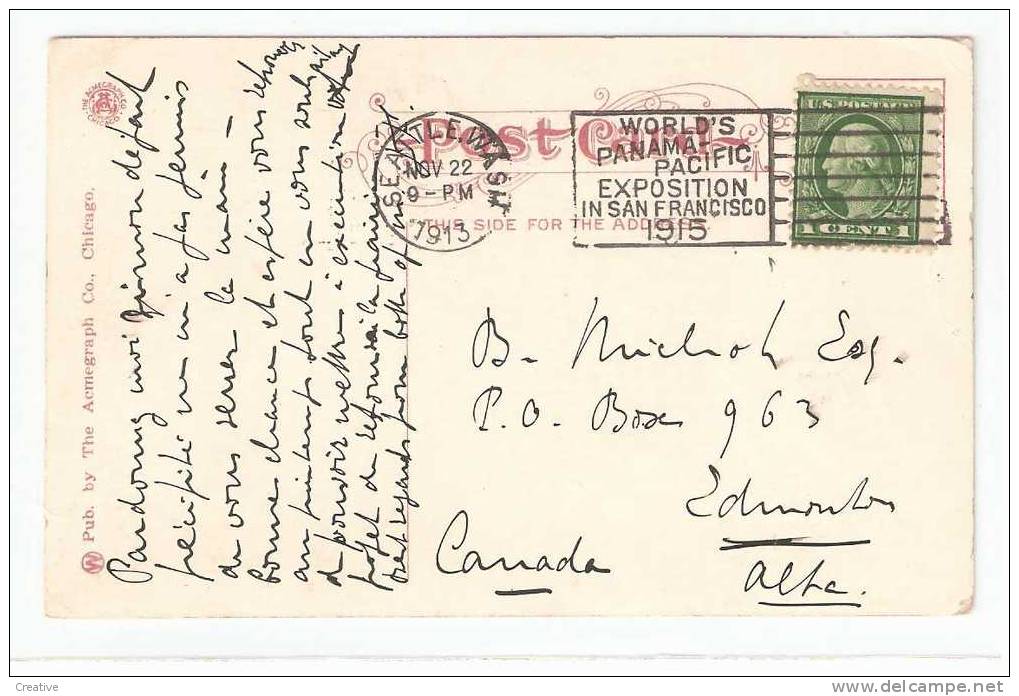 THE ACMEGRAPH CO.
CHICAGO
W Pub. by The Acmegraph Co., Chicago.
Post Card
THIS SIDE FOR THE ADDRESS.
SEATTLE, WASH.
NOV 22
9-PM
1913
WORLD'S
PANAMA-
PACIFIC
EXPOSITION
IN SAN FRANCISCO
1915
U.S. POSTAGE
1 CENT 1
Pardonnez moi mon départ
précipité m'a pas permis
de vous serrer la main -
bonne chance et espère vous retrouver
au printemps tout en vous souhaitant
de pouvoir mettre à exécution
projet de retourner la france
best regards from both of us
B. Nichols Esq.
P.O. Box 963
Edmonton
Alta.
Canada
Creative
www.delcampe.net